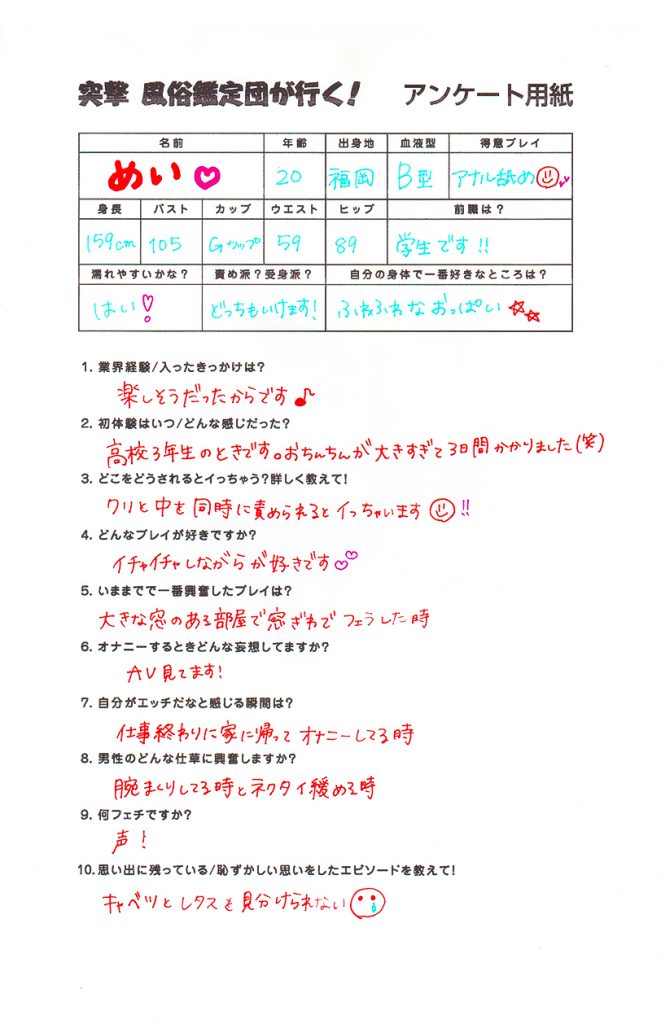 突撃 風俗鑑定団が行く! アンケート用紙
名前 年齢 出身地 血液型 得意プレイ
めい♡ 20 福岡 B型 アナル舐め
身長 バスト カップ ウエスト ヒップ 前職は?
159cm 105 Gカップ 59 89 学生です!!
濡れやすいかな? 責め派?受身派? 自分の身体で一番好きなところは?
はい! どっちもいけます! ふわふわなおっぱい☆☆
1. 業界経験/入ったきっかけは?
楽しそうだったからです♪
2. 初体験はいつ/どんな感じだった?
3. どこをどうされるとイっちゃう?詳しく教えて!
クリと中を同時に責められるとイっちゃいます!!
4. どんなプレイが好きですか?
イチャイチャしながらが好きです♡♡
5. いままでで一番興奮したプレイは?
大きな窓のある部屋で窓ぎわでフェラした時
6. オナニーするときどんな妄想してますか?
AV見てます!
7. 自分がエッチだなと感じる瞬間は?
仕事終わりに家に帰ってオナニーしてる時
8. 男性のどんな仕草に興奮しますか?
腕まくりしてる時とネクタイ緩める時
9. 何フェチですか?
声!
10. 思い出に残っている/恥ずかしい思いをしたエピソードを教えて!
キャベツとレタスを見分けられない